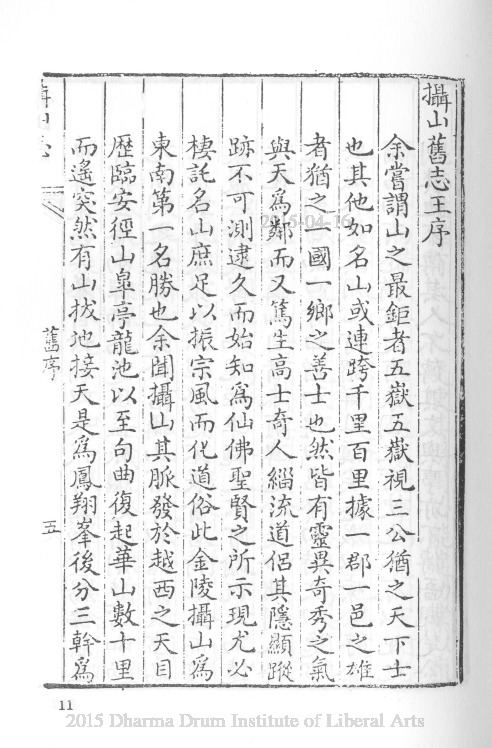 攝山舊志王序
余嘗謂山之最鉅者五嶽五嶽視三公猶之天下士
也其他如名山或連跨千里百里據一郡一邑之雄
者猶之一國一鄉之善士也然皆有靈異奇秀之氣
與天為鄰而又篤生高士奇人緇流道侶其隱顯蹤
跡不可測逮久而始知為仙佛聖賢之所示現尤必
棲託名山庶足以振宗風而化道俗此金陵攝山為
東南第一名勝也余聞攝山其脈發於越西之天目
歷臨安徑山皐亭龍池以至句曲復起華山數十里
而遙突然有山拔地接天是為鳳翔峯後分三幹為
舊序
五
11
2015-04-16
2015 Dharma Drum Institute of Liberal Arts